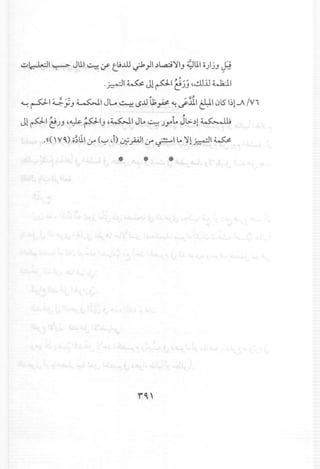 قِبَل وزارة الماليَّة والاقتصاد الوطني للدفاع عن بيت المال حسب التعليمات
المنظمة لذلك، ورَفْعُ الحُكم إلى محكمة التمييز.
٨/٧٦ـ إذا كان المبلغ المُدَّعى به محفوظاً لدى بيت مال المحكمة وتَوَجَّه الحكم به
فللمحكمة إدخالُ مأمور بيت مال المحكمة، والحكمُ عليه، ورفعُ الحكم إلى
محكمة التمييز إلا ما استُثني من الفقرتين (أ، ب) من المادَّة (١٧٩)».
* * *
٣٩١